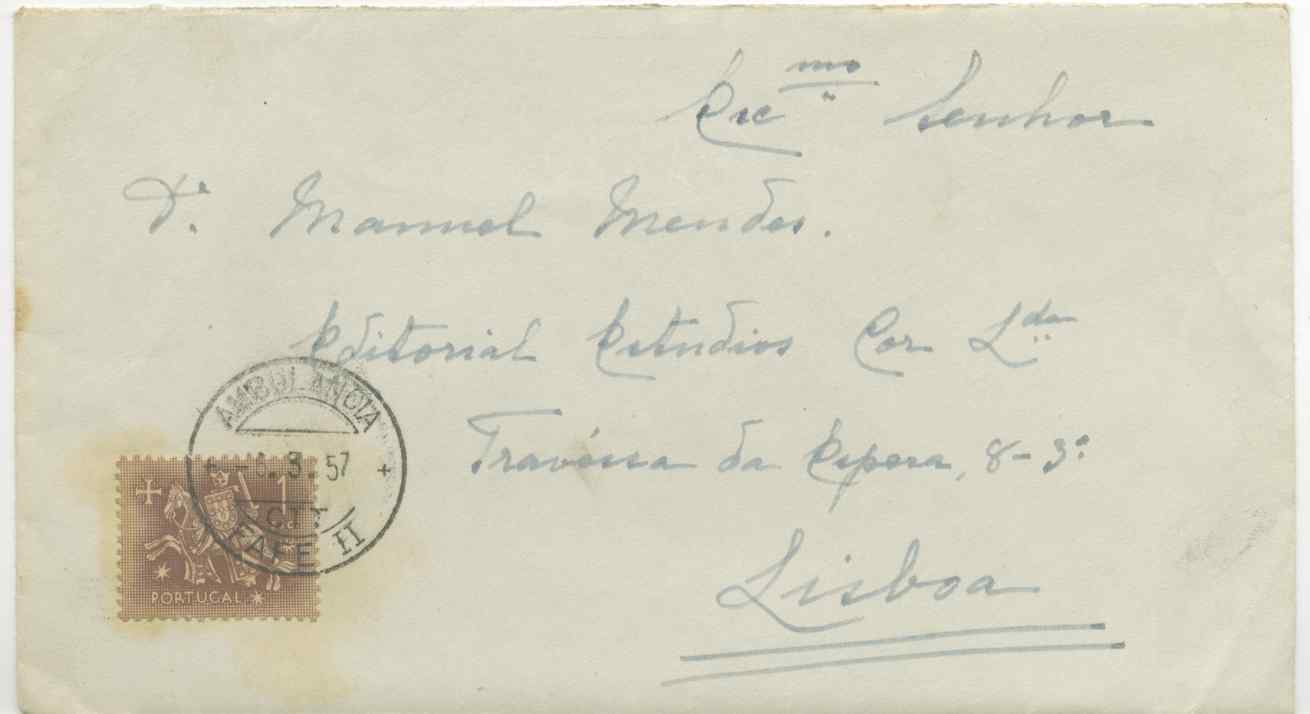 Exc.mo Senhor
Dr. Manuel Mendes.
Editorial Estudios Cor L.da
Travéssa da Espera, 8-3º
Lisboa
AMBULANCIA
3.57
CTT
FAFE II
1
PORTUGAL